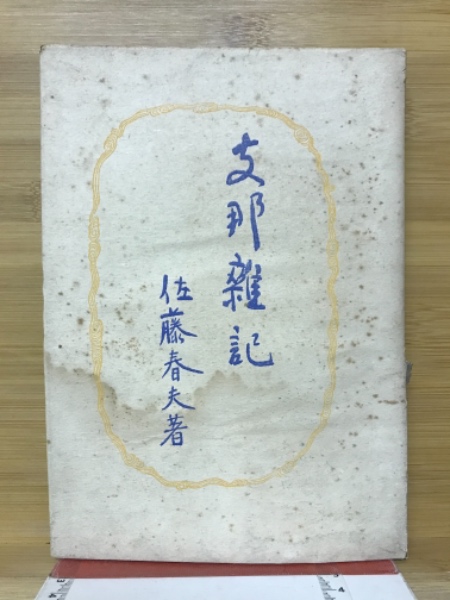 支那雜記
佐藤春夫著